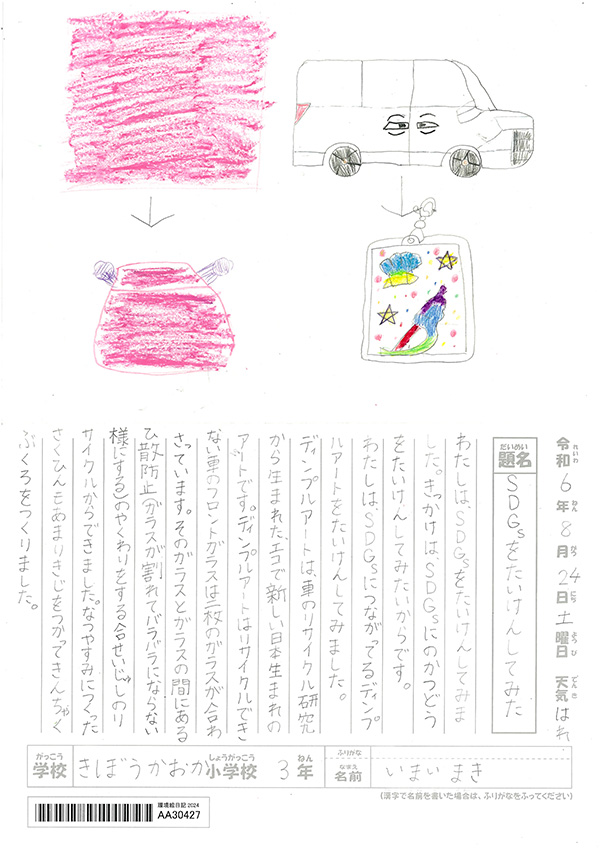 令和6年8月24日土曜日 天気はれ
れいわ ねん がつ にち ようび てんき
だいめい
題名
SDGsをたいけんしてみた
わたしは、SDGsをたいけんしてみま
した。きっかけは、SDGsにのかつどう
をたいけんしてみたいからです。
わたしは、SDGsにつながってるディンプ
ルアートをたいけんしてみました。
ディンプルアートは、車のリサイクル研究
から生まれた、エコで新しい日本生まれの
アートです。ディンプルアートはリサイクルでき
ない車のフロントガラスは二枚のガラスが合わ
さっています。そのガラスとガラスの間にある
ひ散防止(ガラスが割れてバラバラにならない
様にする)のやくわりをする合せいじゅしのリ
サイクルからできました。なつやすみにつくった
さくひんもあまりきじをつかってきんちゃく
ぶくろをつくりました。
がっこう しょうがっこう ねん
学校 きぼうかおか小学校 3年
ふりがな
なまえ
名前 いまい まき
(漢字で名前を書いた場合は、ふりがなをふってください)
環境絵日記2024
AA30427